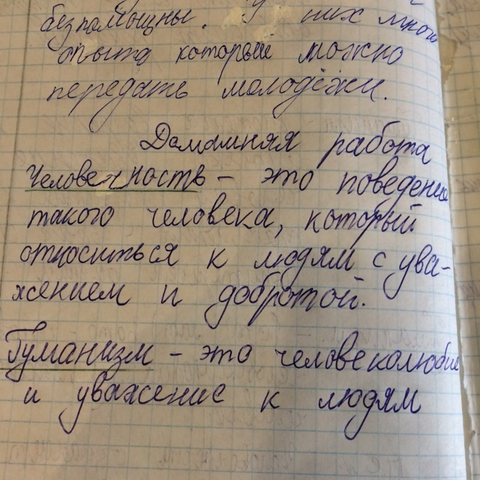 беспомощны. У них много
опыта который можно
передать молодёжи.
Домашняя работа
Человечность - это поведение
такого человека, который
относиться к людям с ува-
жением и добротой.
Гуманизм - это человеколюбие
и уважение к людям